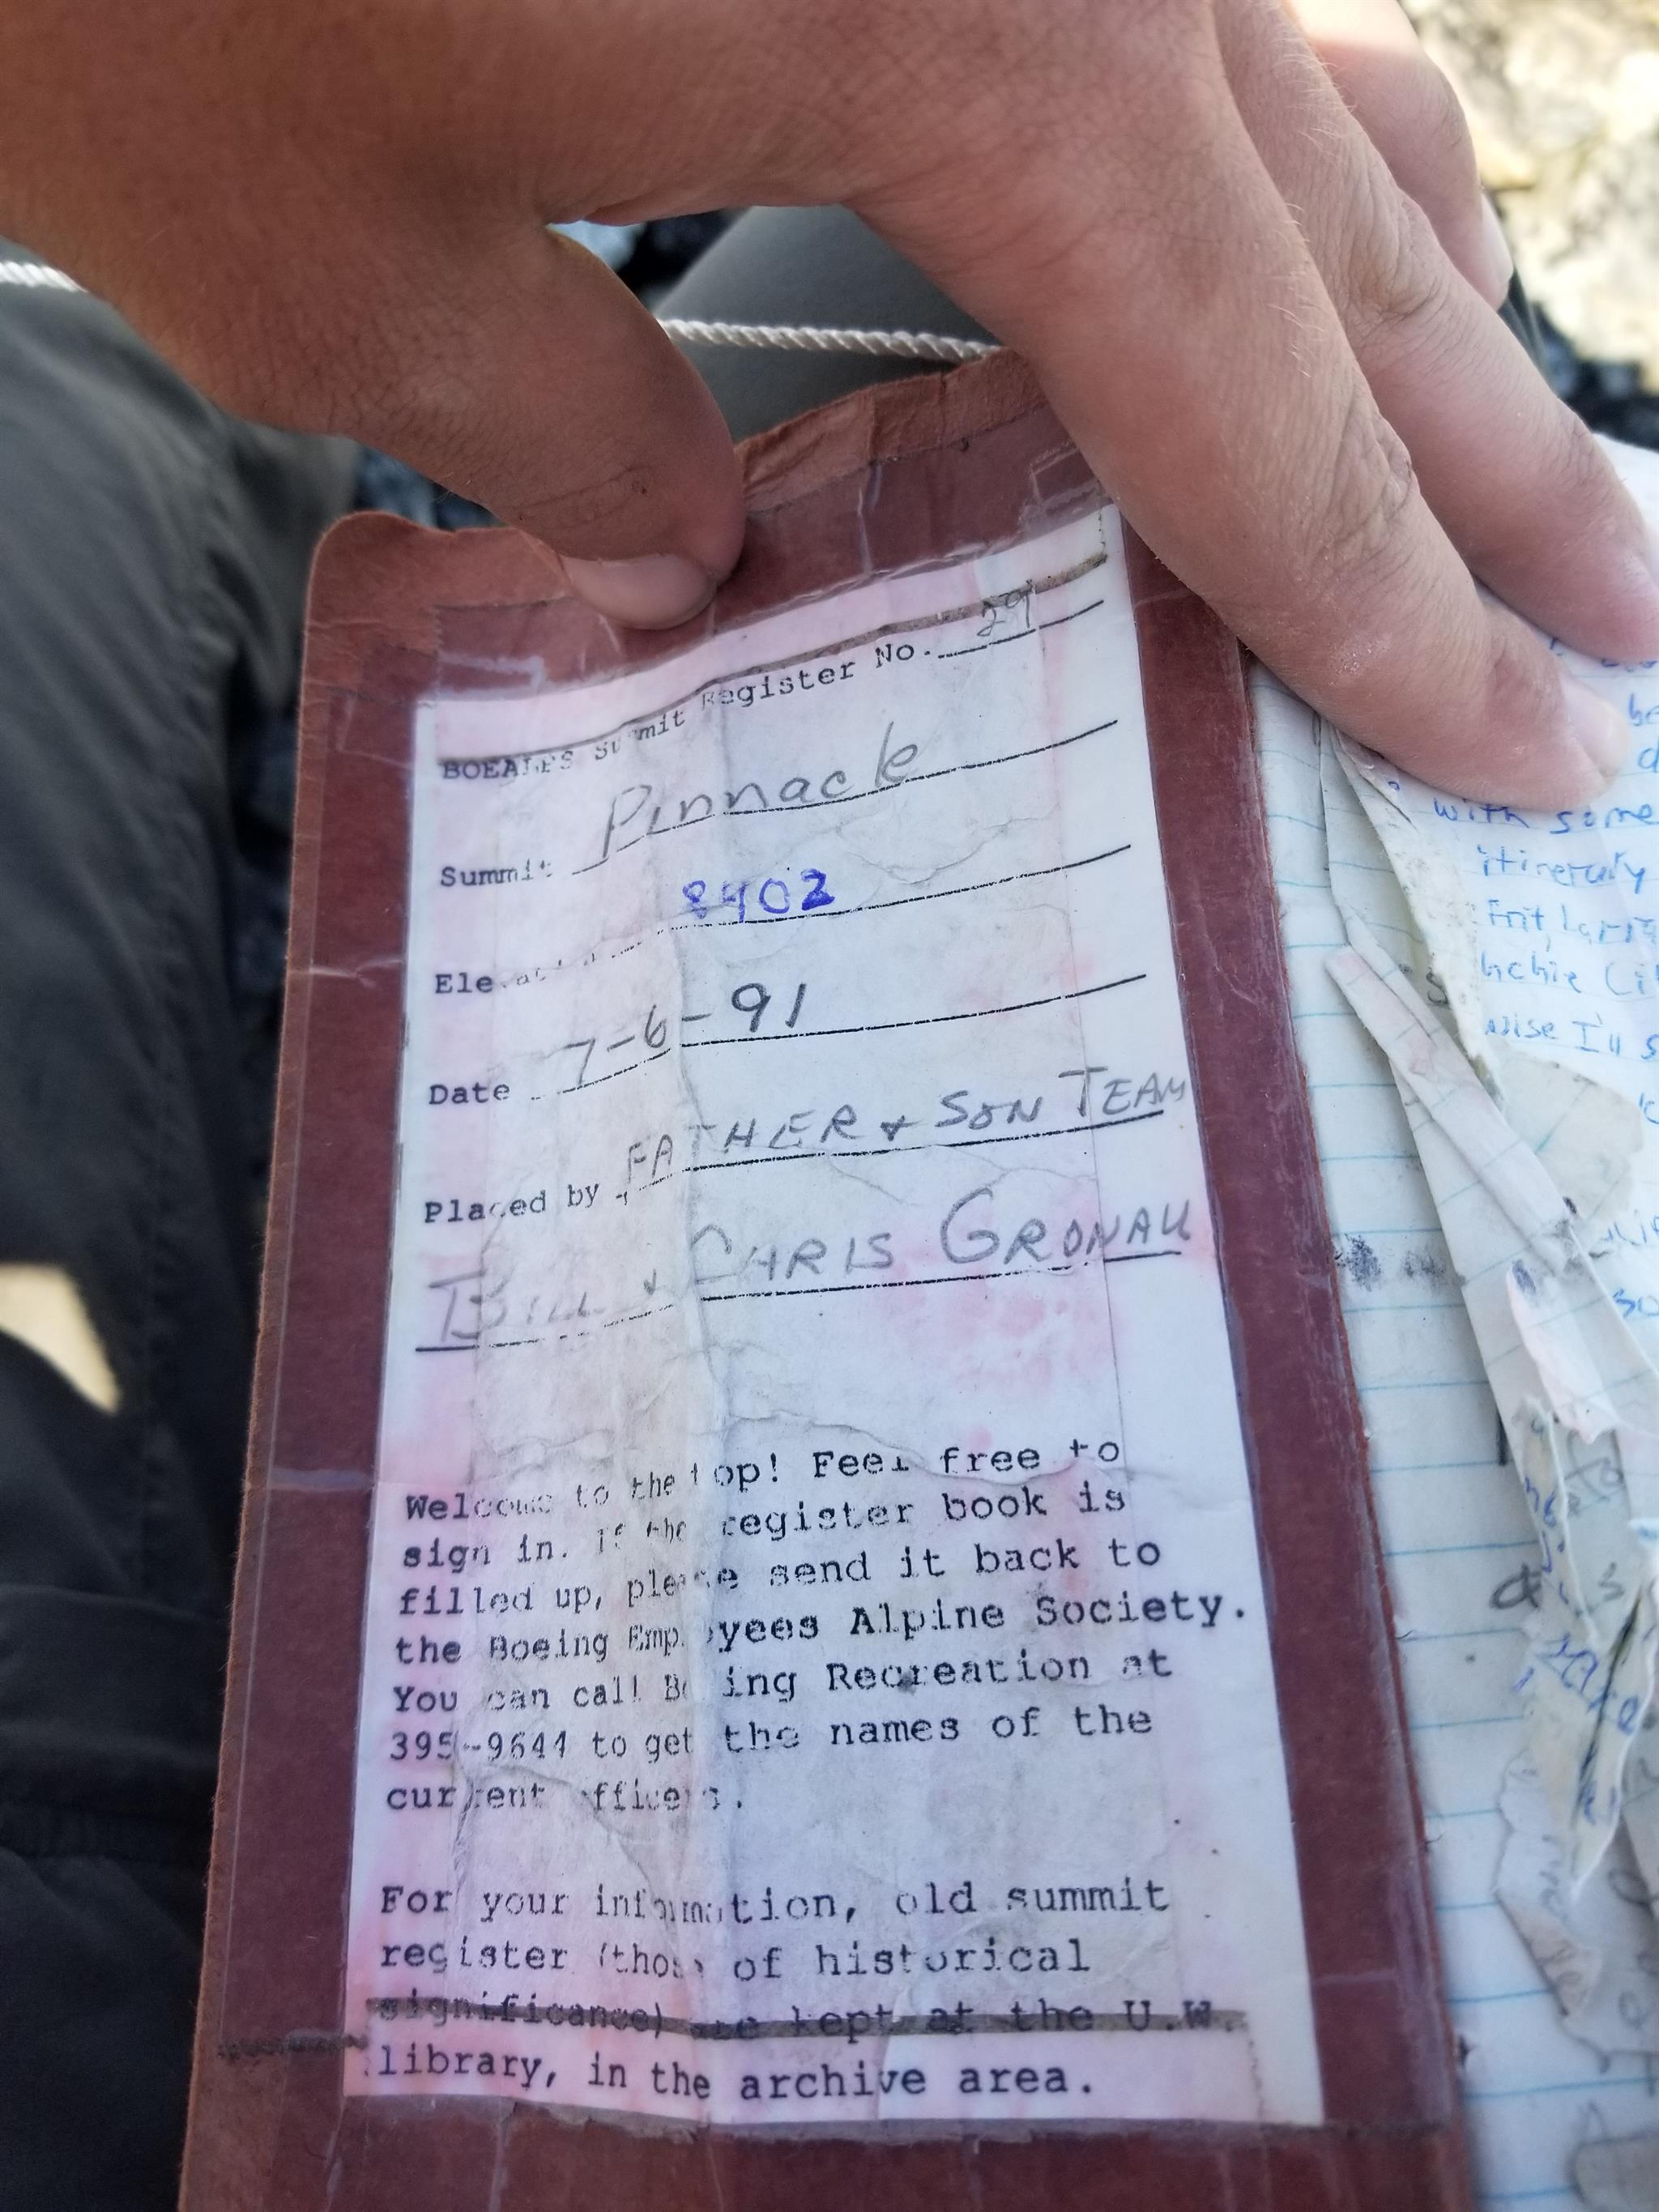 BOEALPS Summit Register No. 29
Summit Pinnacle
Elevation 8402
Date 7-6-91
Placed by FATHER + SON TEAM
BILL + CHRIS GRONAU
Welcome to the top! Feel free to
sign in. If the register book is
filled up, please send it back to
the Boeing Employees Alpine Society.
You can call Boeing Recreation at
395-9644 to get the names of the
current officers.
For your information, old summit
register (those of historical
significance) are kept at the U.W.
library, in the archive area.
be
d
with some
itinerary
I'll s